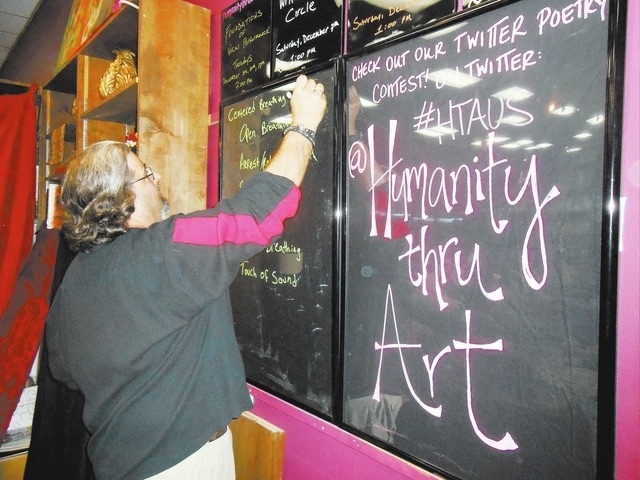 FOUNDATIONS
OF
VOCAL PERFORMANCE
TUESDAYS
7:00 PM
Circle
Saturday, December 7th
1:00 PM
Saturday, Dec
1:00 PM
CHECK OUT OUR TWITTER POETRY
CONTEST! ON TWITTER:
#HTAOS
@Humanity
thru
Art
Centered Breathing
Open Breath
Breathing
Touch of Sound